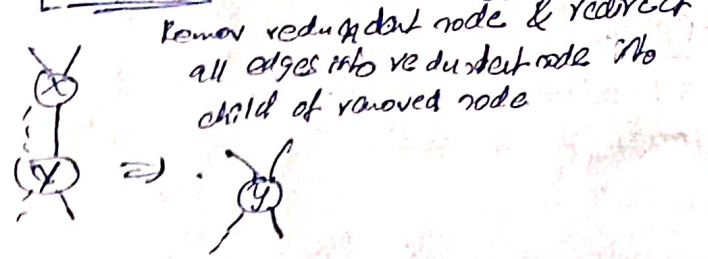 Remov redundant node & redirect
all edges into redundent node into
child of removed node
X
Y
⇒
y